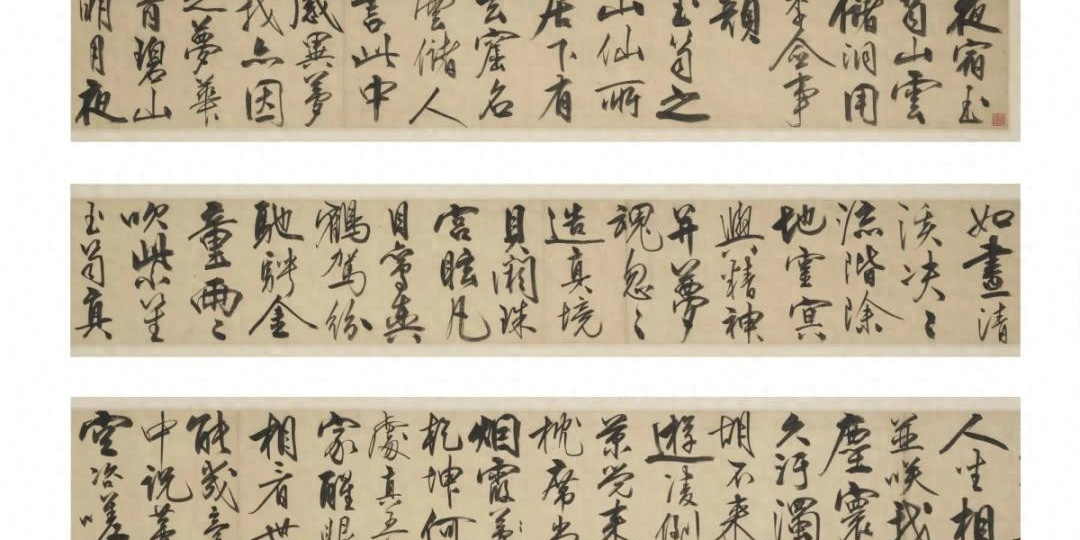 夜宿玉
笥山雲
儲洞用
李僉事
韻
玉笥之
山仙所
居下有
玄窟名
雲儲人
言此中
感異夢
我亦因
之夢華
胥碧山
明月夜
如畫清
溪决〻
流階除
地靈冥
與精神
并夢
魂忽〻
造真境
貝闕珠
宮眩凡
目鸞輿
鶴駕紛
馳騁金
童兩〻
吹紫笙
玉笥真
人生相
並咲我
塵寰
久汙濁
胡不来
遊凌倒
景覺来
枕席尚
烟霞
乾坤何
處真吾
家醒眼
相看世
能幾
中說夢
空咨嗟